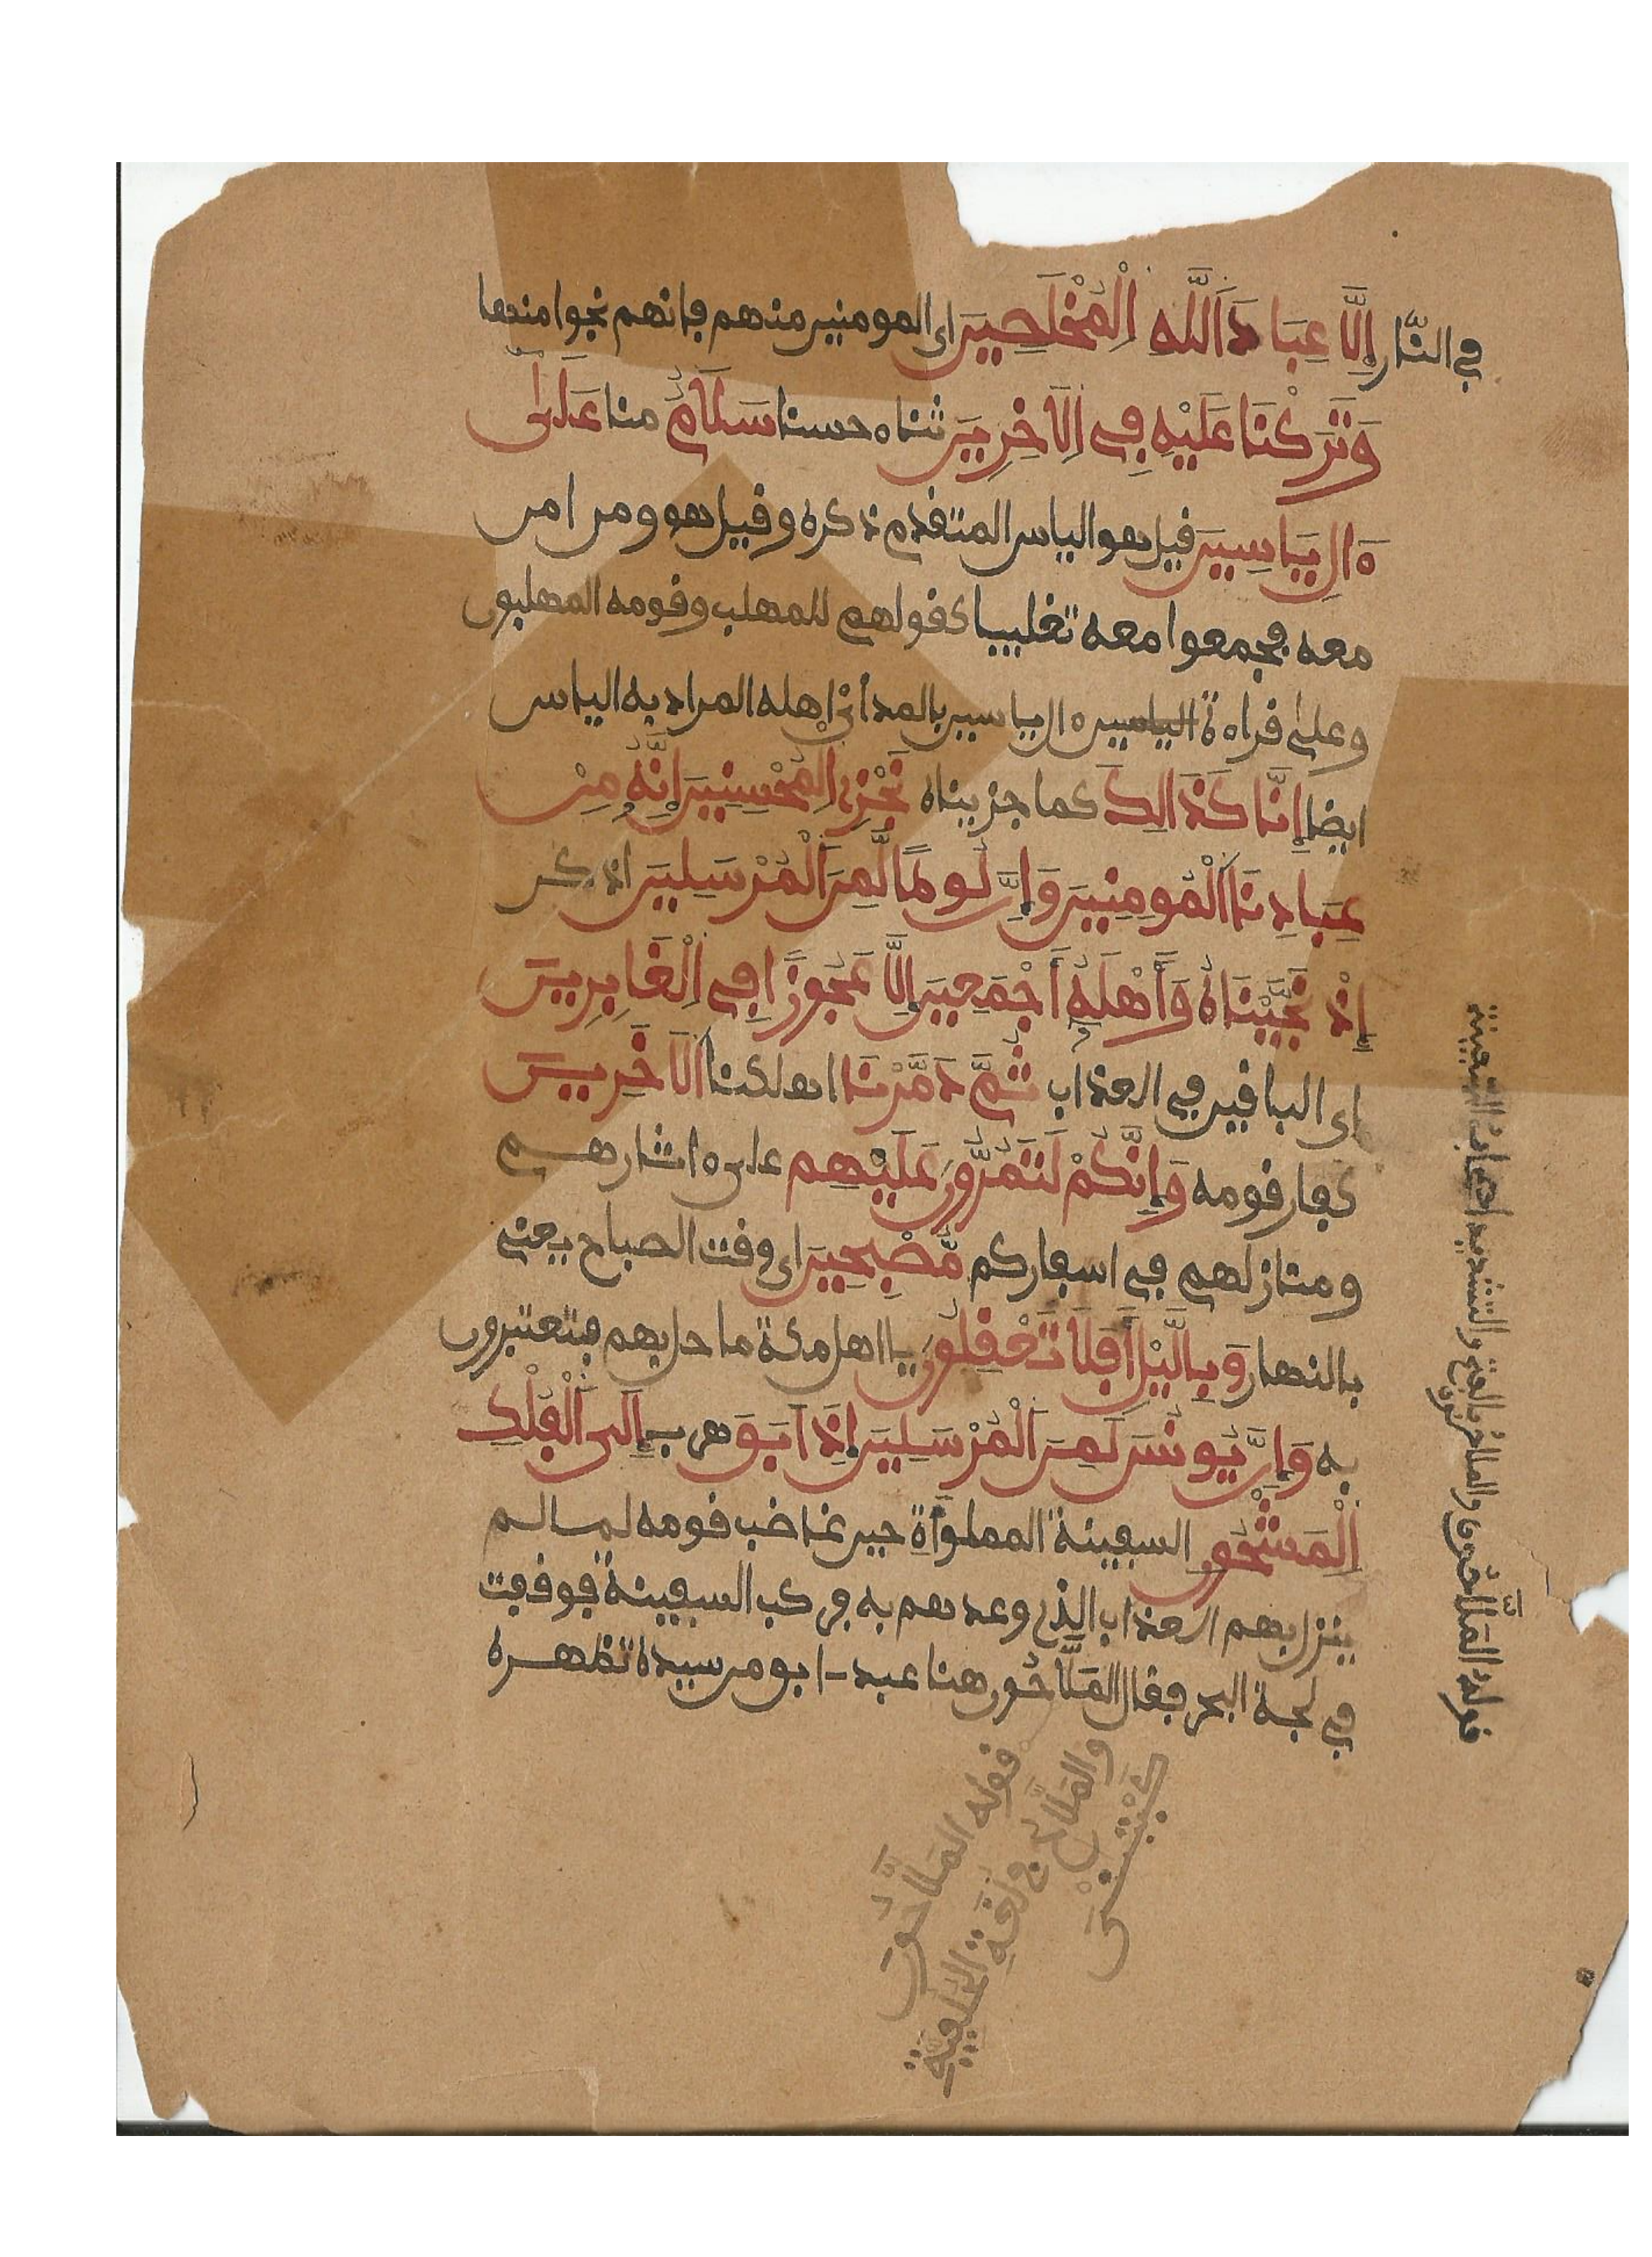 في النار إِلَّا عِبَادَ اَللَّهِ اِلْمُخْلَصِينَ اى المومنين منهم فانهم نجوا منها
وَتَرَكْنَا عَلَيْهِ فِي اِلَاخِرِينَ ثناء حسنا سَلَامٌ منا عَلَىٰ
ءَالِ يَاسِينَ قيل هو الياس المتقدم ذكره وقيل هو ومن امن
معه فجمعوا معه تغليبا كقولهم للمهلب وقومه المهلبون
وعلى قراءة الياسين ءال ياسين بالمد أي اهله المراد به الياس
ايضا إِنَّا كَذَالِكَ كما جزيناه نَجْزِي اِلْمُحْسِنِينَ إِنَّهُ مِنْ
عِبَادِنَا اَلْمُومِنِينَ وَإِنَّ لُوطًا لَّمِنَ اَلْمُرْسَلِينَ اذكر
إِذْ نَجَّيْنَاهُ وَأَهْلَهُ أَجْمَعِينَ إِلَّا عَجُوزًا فِي اِلْغَابِرِينَ
اى الباقين في العذاب ثُمَّ دَمَّرْنَا اهلكنا اَلَاخِرِينَ
كفار قومه وَإِنَّكُمْ لَتَمُرُّونَ عَلَيْهِم على ءاثارهم
ومنازلهم في اسفاركم مُّصْبِحِينَ اى وقت الصباح يعني
بالنهار وَبِالَّيْلِ أَفَلَا تَعْقِلُونَ يا اهل مكة ما حل بهم فتعتبرون
به وَإِنَّ يُونُسَ لَمِنَ اَلْمُرْسَلِينَ إِذَ اَبَقَ هرب إِلَى اَلْفُلْكِ
اِلْمَشْحُونِ السفينة المملوأة حين غاضب قومه لما لم
ينزل بهم العذاب الذي وعدهم به فركب السفينة فوقفت
في لجة البحر فقال المَلَّاحُون هنا عبد ابق من سيده تظهره
قوله المَلَّاحُونَ
والمَلَّاحُ في لغة
قوله المَلَّاحُون والملاح بالفتح والتشديد اصحاب السفينة